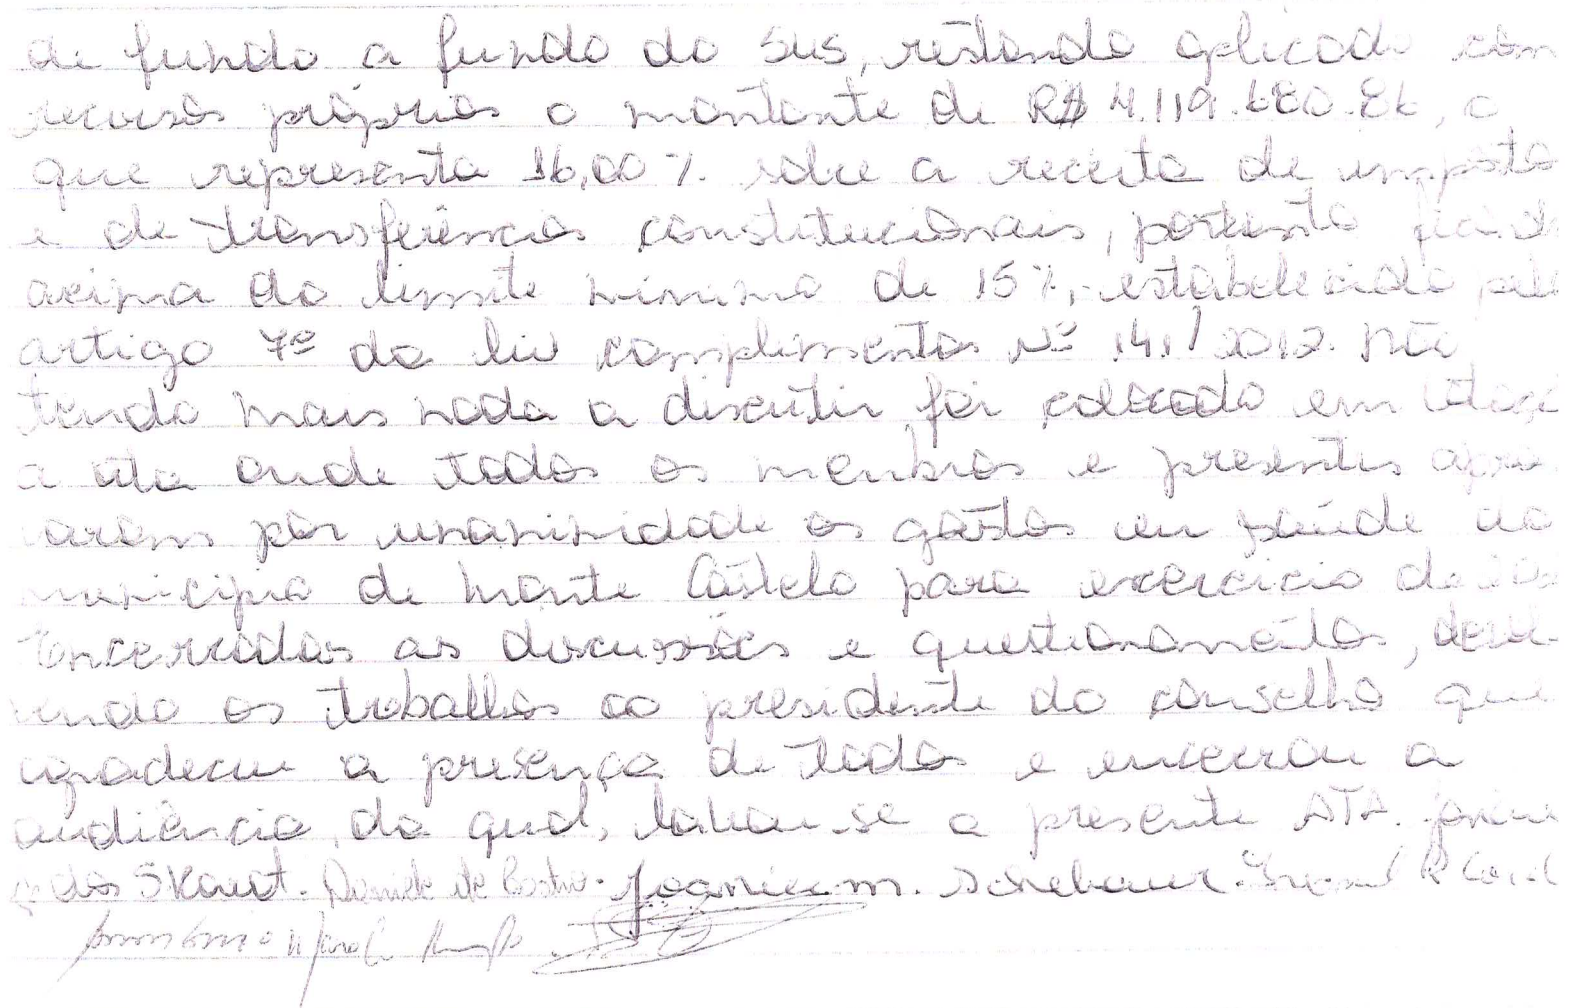 de fundo a fundo do SUS, restando aplicado com
recursos próprios o montante de R$ 4.119.680.86, o
que representa 16,00 % sobre a receita de imposto
e de transferências constitucionais, portanto ficando
acima do limite mínimo de 15%, estabelecido pelo
artigo 7º da lei complementar Nº 141/2012. Não
tendo mais nada a discutir foi colocado em votaçã
a ata onde todos os membros e presentes apro
varam por unanimidade os gastos em saúde do
município de Monte Castelo para exercício de
Encerradas as discussões e questionamentos, devol-
vendo os trabalhos ao presidente do conselho que
agradeceu a presença de todos e encerrou a
audiência, da qual, lavrou-se a presente ATA.
dos Skaut. Daniele de Castro.